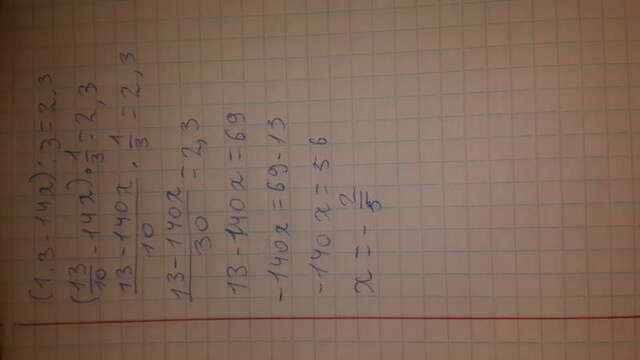 (1,3 - 14x) : 3 = 2,3
(13/10 - 14x) · 1/3 = 2,3
13 - 140x/10 · 1/3 = 2,3
13 - 140x/30 = 2,3
13 - 140x = 69
-140x = 69 - 13
-140x = 56
x = - 2/5